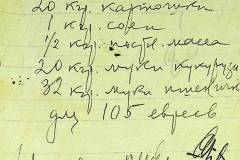 20 кгр. картошки
1 кгр. соли
1/2 кгр. постн. масла
20 кгр. муки кукуруз
32 кгр. муки пшенич
для 105 евреев